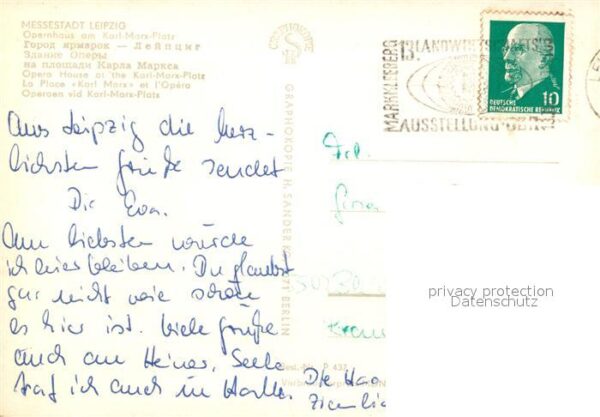 MESSESTADT LEIPZIG
Opernhaus am Karl-Marx-Platz
Город ярмарок — Лейпциг
Здание Оперы
на площади Карла Маркса
Opera House at the Karl-Marx-Platz
La Place «Karl Marx» et l'Opéra
Operaen vid Karl-Marx-Platz
Aus Leipzig die herz-
lichsten Grüße sendet
Dir Eva.
Am liebsten würde
ich hier bleiben. Du glaubst
gar nicht wie schön
es hier ist. Viele Grüße
auch an Heiner.
traf ich auch in Halle. Die
GRAPHOKOPIE H. SANDER KG BERLIN
Best.-Nr. P
MARKKLEEBERG
13. LANDWIRTSCHAFTS
AUSSTELLUNG DDR
10
DEUTSCHE
DEMOKRATISCHE REPUBLIK
Frl.
privacy protection
Datenschutz